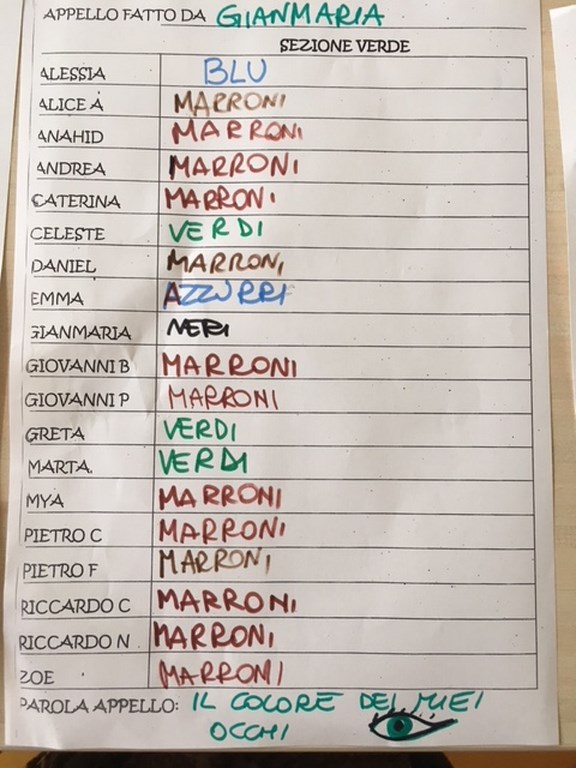 APPELLO FATTO DA GIANMARIA
SEZIONE VERDE
ALESSIA BLU
ALICE A MARRONI
ANAHID MARRONI
ANDREA MARRONI
CATERINA MARRONI
CELESTE VERDI
DANIEL MARRONI
EMMA AZZURRI
GIANMARIA NERI
GIOVANNI B MARRONI
GIOVANNI P MARRONI
GRETA VERDI
MARTA. VERDI
MYA MARRONI
PIETRO C MARRONI
PIETRO F MARRONI
RICCARDO C MARRONI
RICCARDO N MARRONI
ZOE MARRONI
PAROLA APPELLO: IL COLORE DEI MIEI
OCCHI